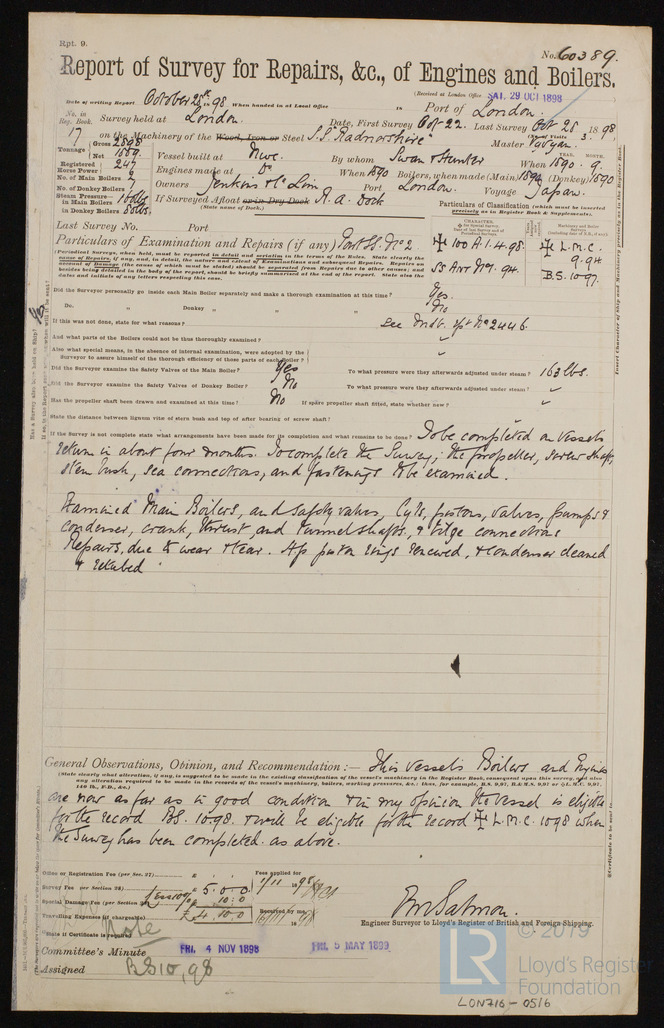 Rpt. 9.
No. 60389.
Report of Survey for Repairs, &c., of Engines and Boilers.
(Received at London Office SAT. 29 OCT 1898
Date of writing Report October 28th 1898 When handed in at Local Office
Port of London.
No. in Reg. Book. 17
Survey held at London.
Date, First Survey Oct 22. Last Survey Oct 28. 1898
on the Machinery of the Wood, Iron or Steel S.S. Radnorshire
(No. of Visits 3.
Master
Tonnage Gross 2898
Net 1889
Vessel built at Nwc.
By whom Swan & Hunter
When 1890. 9.
Registered Horse Power 247
Engines made at Do
When 1890
Boilers, when made (Main) 1890 (Donkey) 1890
No. of Main Boilers 2
No. of Donkey Boilers
Owners Jenkins & Co Lim
Port London.
Voyage Japan.
Steam Pressure in Main Boilers 160 lbs
in Donkey Boilers 80 lbs.
If Surveyed Afloat or in Dry Dock R. A. Dock
(State name of Dock.)
Particulars of Classification (which must be inserted precisely as in Register Book & Supplements).
Last Survey No. Port
Particulars of Examination and Repairs (if any) Part SS. No 2
✠ 100 A.1. 4.98.
SS No 1. 94.
✠ L.M.C. 9.94
B.S. 10.97
Did the Surveyor personally go inside each Main Boiler separately and make a thorough examination at this time? Yes.
Do. " Donkey " " " " No
If this was not done, state for what reasons? See Indt. rpt No 2446.
And what parts of the Boilers could not be thus thoroughly examined? "
Also what special means, in the absence of internal examination, were adopted by the
Surveyor to assure himself of the thorough efficiency of those parts of each Boiler? "
Did the Surveyor examine the Safety Valves of the Main Boiler? Yes To what pressure were they afterwards adjusted under steam? 163 lbs.
Did the Surveyor examine the Safety Valves of Donkey Boiler? No To what pressure were they afterwards adjusted under steam? "
Has the propeller shaft been drawn and examined at this time? No If spare propeller shaft fitted, state whether new? "
State the distance between lignum vitæ of stern bush and top of after bearing of screw shaft?
If the Survey is not complete state what arrangements have been made for its completion and what remains to be done? To be completed on vessels
return in about four months. To complete the Survey, the propeller, screw shaft,
stern bush, sea connections, and fastenings to be examined.
Examined Main Boilers, and safety valves, Cyls, pistons, valves, pumps &
condenser, crank, thrust, and tunnel shafts, & bilge connections
Repairs, due to wear & tear. Hp piston rings renewed, & condenser cleaned
& retubed
General Observations, Opinion, and Recommendation:— This vessels Boilers and Engines
(State clearly what alteration, if any, is suggested to be made in the existing classification of the vessel's machinery in the Register Book, consequent upon this survey, and also
any alteration required to be made in the records of the vessel's machinery, boilers, working pressures, &c.: thus, for example, B.S. 9,97, B.& M.S. 9,97 or ✠L.M.C. 9,97,
140 lb., F.D., &c.)
are now as far as in good condition & in my opinion the vessel is eligible
for the record BS. 10.98. & will be eligible for the record ✠ L.M.C. 10.98 when
the Survey has been completed as above.
Office or Registration Fee (per Sec. 27)
Survey Fee (per Section 28) £ 5.0.0
Special Damage Fee (per Section 28) Less 10% 10.0
Travelling Expenses (if chargeable) £ 4.10.0
Fees applied for 1/11 1898
Received by me,
Engineer Surveyor to Lloyd's Register of British and Foreign Shipping.
State if Certificate is required
Note
Committee's Minute FRI. 4 NOV 1898 FRI. 5 MAY 1899
Assigned BS 10,98
© 2019
LR
Lloyd's Register
Foundation
LON716-0516